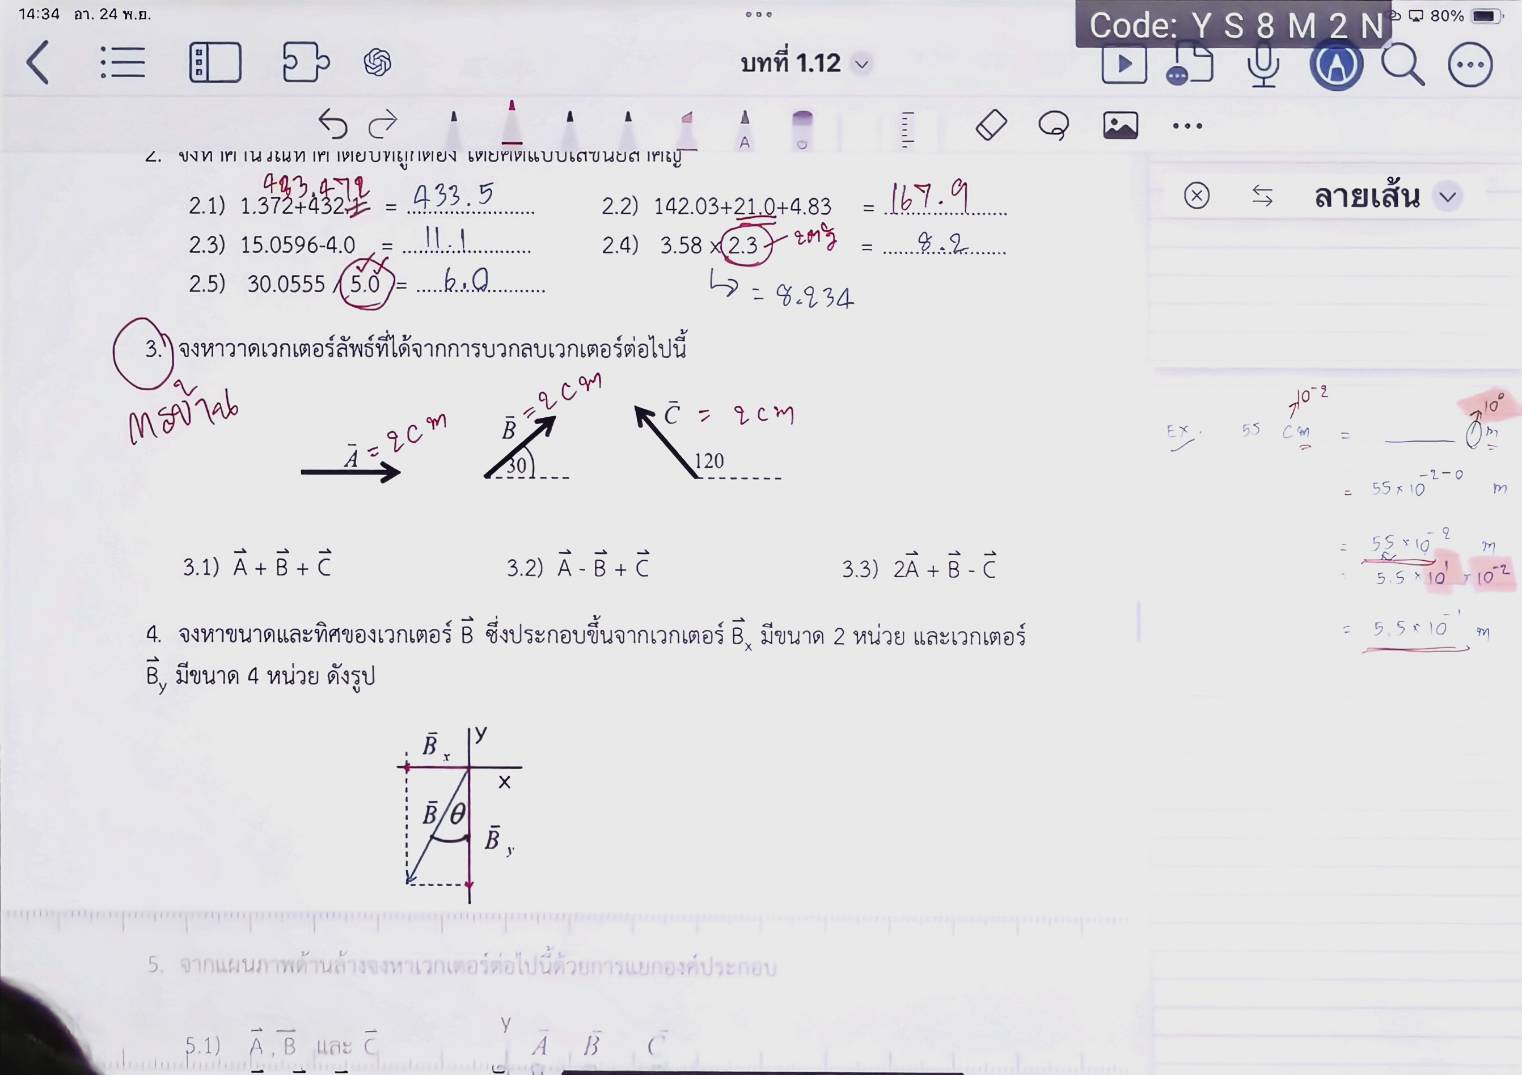 14:34 อา. 24 พ.ย.
Code: Y S 8 M 2 N
80%
บทที่ 1.12
ลายเส้น
433.472
2.1) 1.372+432.1 = 433.5
2.2) 142.03+21.0+4.83 = 167.9
2.3) 15.0596-4.0 = 11.1
2.4) 3.58 × 2.3 = 8.2
2.5) 30.0555 / 5.0 = 6.0
= 8.234
3. จงหาวาดเวกเตอร์ลัพธ์ที่ได้จากการบวกลบเวกเตอร์ต่อไปนี้
A = 2 cm
B = 2 cm
C = 2 cm
30
120
3.1) A + B + C
3.2) A - B + C
3.3) 2A + B - C
4. จงหาขนาดและทิศของเวกเตอร์ B ซึ่งประกอบขึ้นจากเวกเตอร์ Bx มีขนาด 2 หน่วย และเวกเตอร์
By มีขนาด 4 หน่วย ดังรูป
y
Bx
x
B θ
By
5. จากแผนภาพด้านล่างจงหาเวกเตอร์ต่อไปนี้ด้วยการแยกองค์ประกอบ
5.1) A , B และ C
y
A B C
10⁻² 10⁰
Ex. 55 cm = ____ m
= 55 × 10⁻²⁻⁰ m
= 55 × 10⁻² m
5.5 × 10¹ × 10⁻²
= 5.5 × 10⁻¹ m